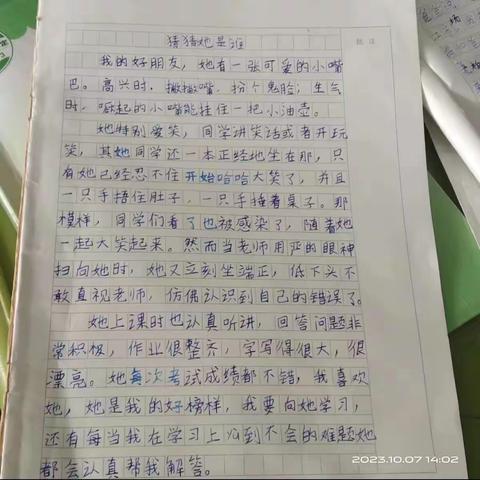 猜猜她是谁
我的好朋友，她有一张可爱的小嘴
巴。高兴时，撇撇嘴，扮个鬼脸；生气
时，噘起的小嘴能挂住一把小油壶。
她特别爱笑，同学讲笑话或者开玩
笑，其她同学还一本正经地坐在那，只
有她已经忍不住开始哈哈大笑了，并且
一只手捂住肚子，一只手捶着桌子。那
模样，同学们看了也被感染了，随着她
一起大笑起来。然而当老师用严的眼神
扫向她时，她又立刻坐端正，低下头不
敢直视老师，仿佛认识到自己的错误了。
她上课时也认真听讲，回答问题非
常积极，作业很整齐，字写得很大，很
漂亮。她每次考试成绩都不错，我喜欢
她，她是我的好榜样，我要向她学习，
还有每当我在学习上必到不会的难题她
都会认真帮我解答。
2023.10.07 14:02